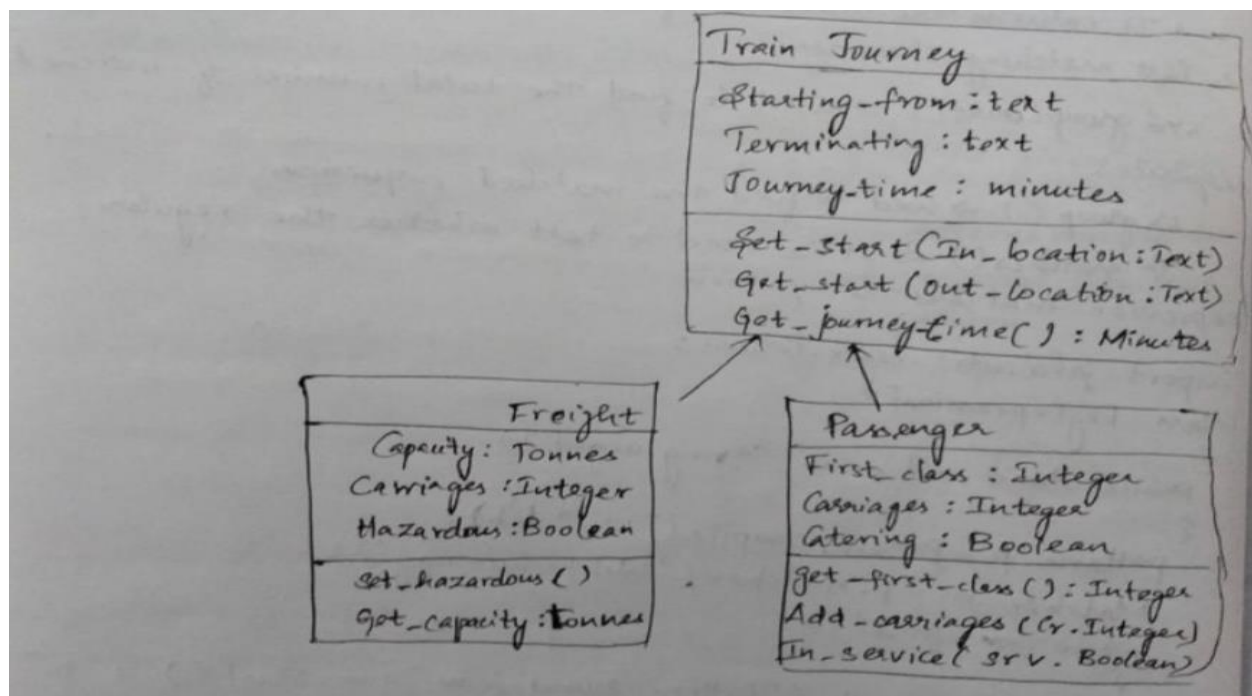 Train Journey
Starting-from : text
Terminating : text
Journey-time : minutes
Set-start (In-location : Text)
Get-start (out-location : Text)
Get-journey-time() : Minutes
Freight
Capacity : Tonnes
Carriages : Integer
Hazardous : Boolean
set-hazardous()
Get-capacity : Tonnes
Passenger
First-class : Integer
Carriages : Integer
Catering : Boolean
get-first-class() : Integer
Add-carriages (Cr. Integer)
In-service( srv. Boolean)